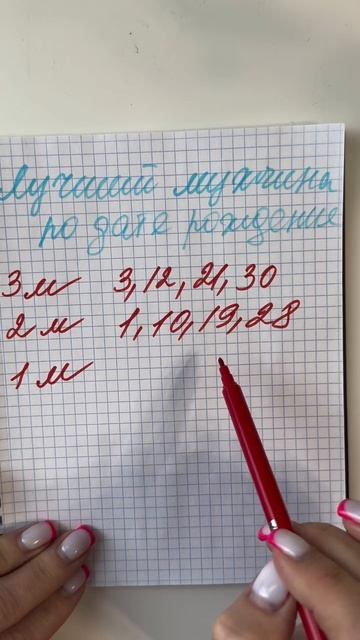 Лучший мужчина
по дате рождение
3 м 3, 12, 21, 30
2 м 1, 10, 19, 28
1 м